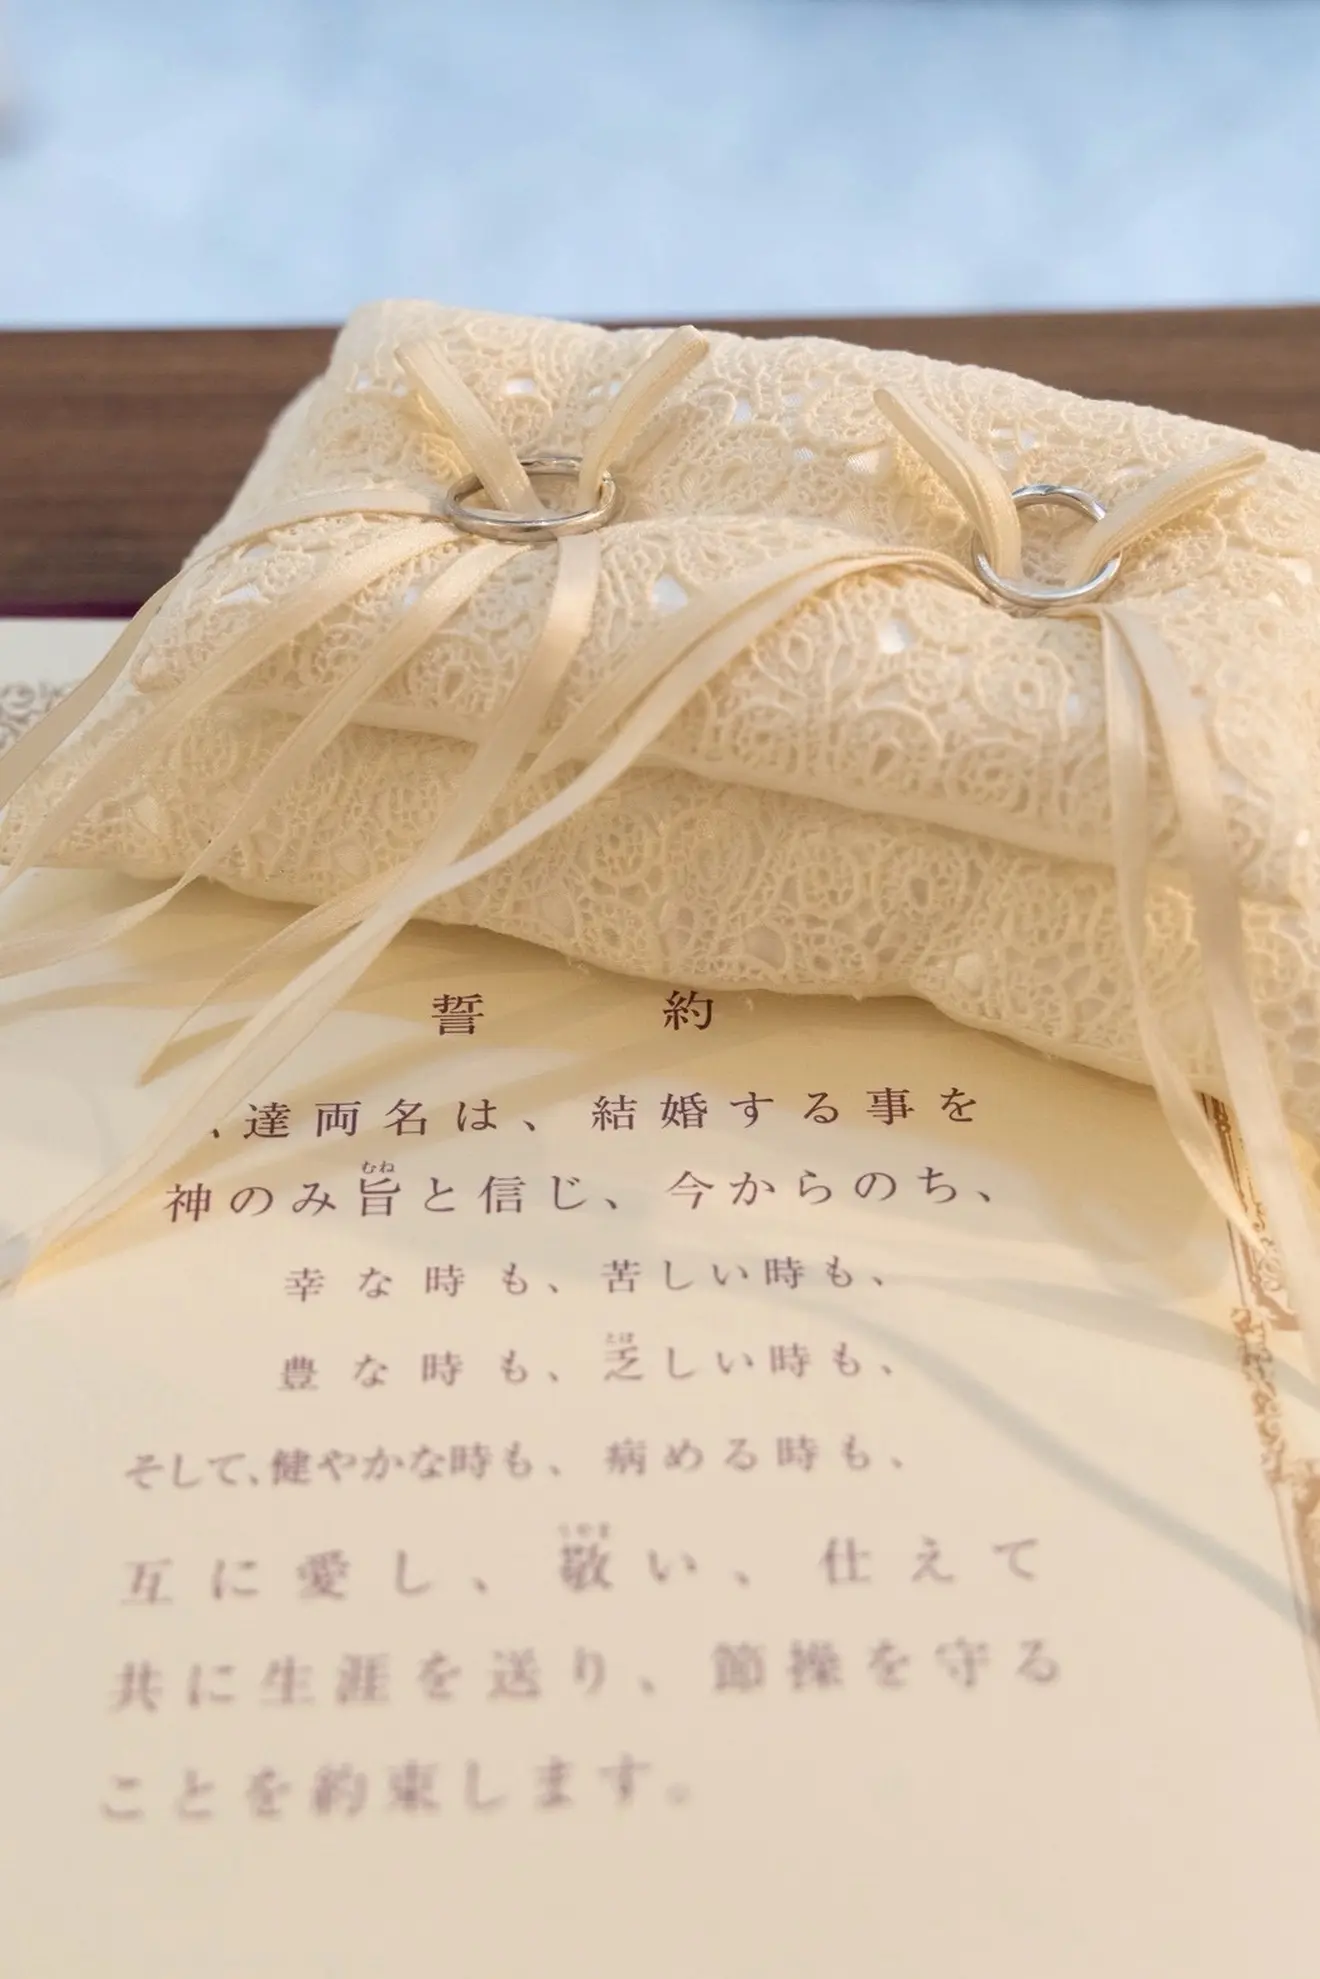 誓約
達両名は、結婚する事を
神のみ旨と信じ、今からのち、
幸な時も、苦しい時も、
豊な時も、乏しい時も、
そして、健やかな時も、病める時も、
互に愛し、敬い、仕えて
共に生涯を送り、節操を守る
ことを約束します。